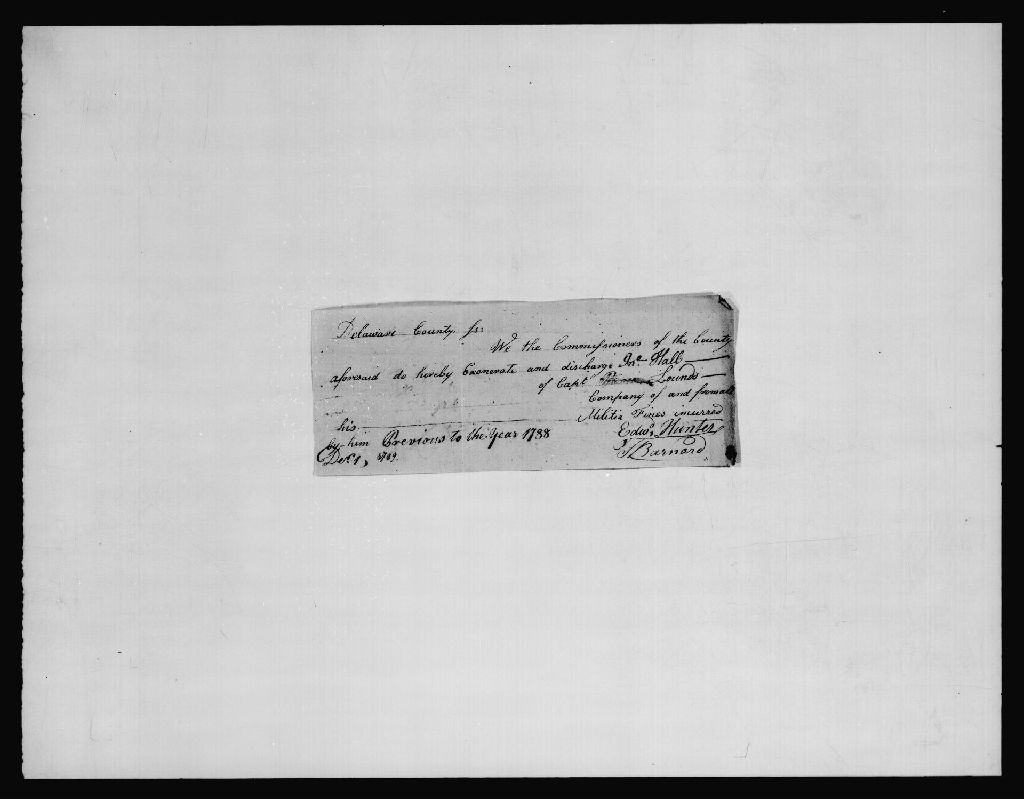 Delaware County ss:
We the Commissioners of the County
aforesaid do hereby Exonerate and discharge Jno Hall
of Capt Lounds
Company of and from all
his Militia Fines incurred
by him Previous to the Year 1788
Edwd Hunter
Dec 1, 1789
J Barnard